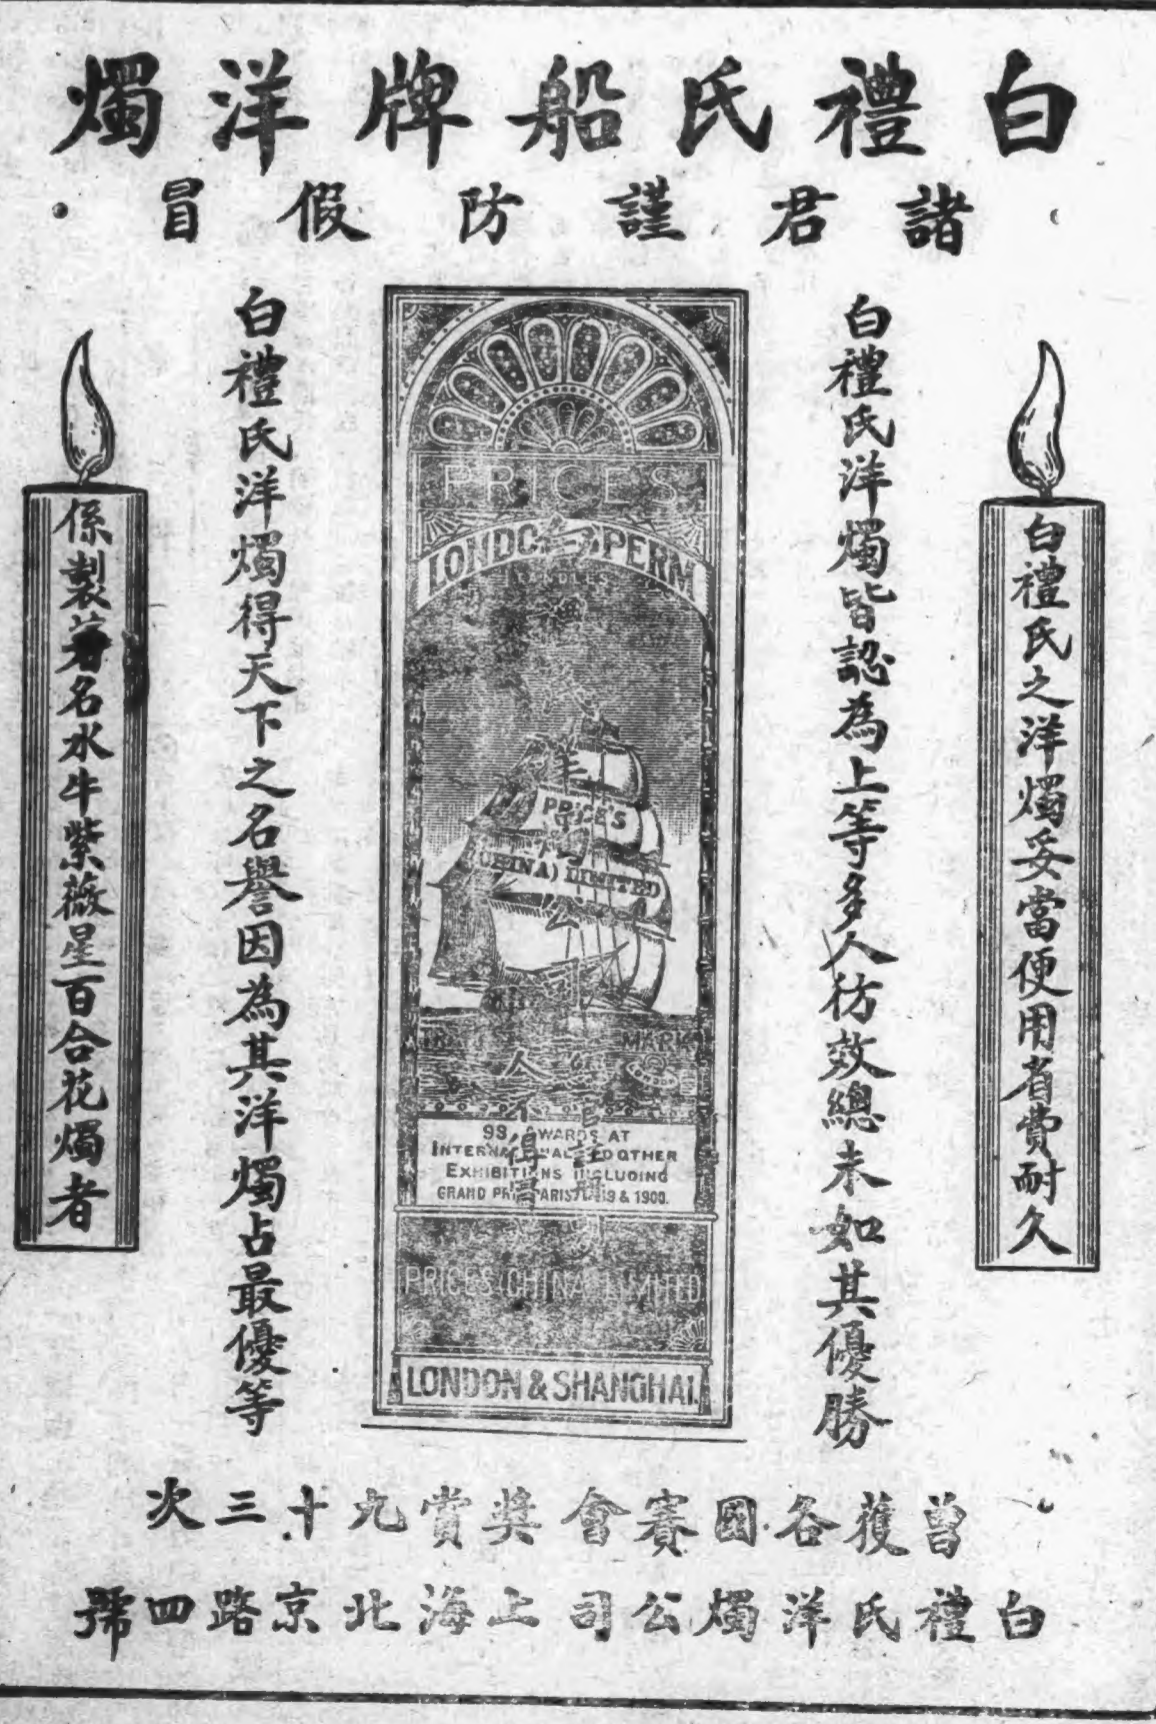 白禮氏船牌洋燭
諸君謹防假冒
白禮氏之洋燭妥當便用省費耐久
白禮氏洋燭皆認為上等多人彷效總未如其優勝
PRICES
LONDON SPERM
CANDLES
洋燭公司
PRICE'S
(CHINA) LIMITED
TRADE MARK
LONDON
93 AWARDS AT
INTERNATIONAL AND OTHER
EXHIBITIONS INCLUDING
GRAND PRIX PARIS & 1900.
PRICES (CHINA) LIMITED
LONDON & SHANGHAI.
白禮氏洋燭得天下之名譽因為其洋燭占最優等
係製著名水牛紫薇星百合花燭者
曾獲各國賽會獎賞九十三次
白禮氏洋燭公司上海北京路四號